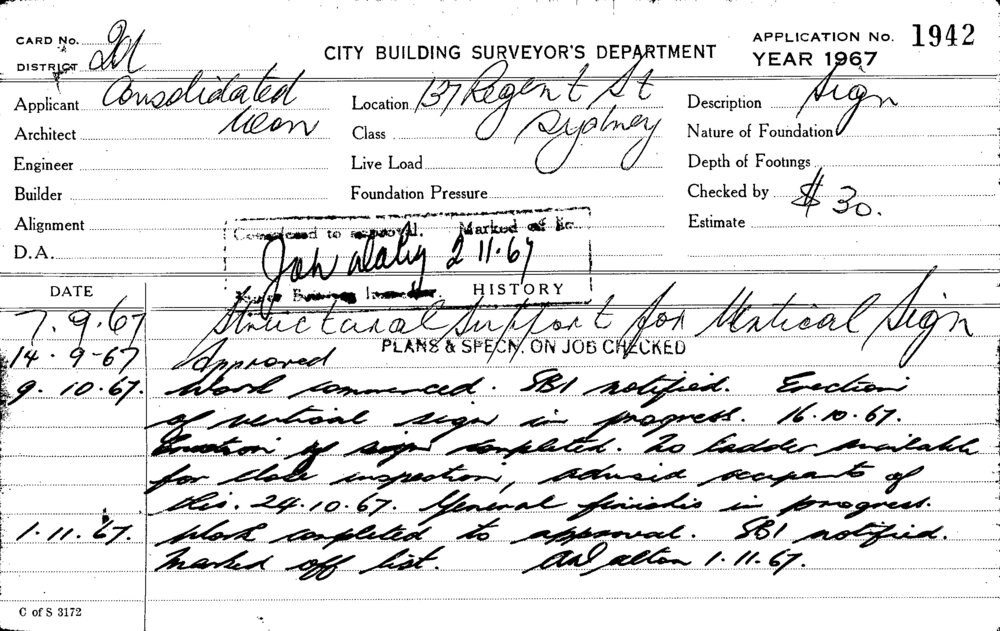 CARD No.
CITY BUILDING SURVEYOR'S DEPARTMENT
APPLICATION No. 1942
DISTRICT
YEAR 1967
Applicant Consolidated
Location 137 Regent St
Description Sign
Architect Neon
Class Sydney
Nature of Foundation
Engineer
Live Load
Depth of Footings
Builder
Foundation Pressure
Checked by $30.
Alignment
Estimate
to approval. Marked off
D.A.
2 11.67
DATE
HISTORY
7.9.67 Structural Support for Vertical Sign
14.9-67 Approved PLANS & SPECN. ON JOB CHECKED
9.10.67. Work commenced. SBI notified. Erection
of vertical sign in progress. 16.10.67.
Erection of sign completed. No ladder available
for close inspection, advised occupants of
this. 24.10.67. General finishis in progress.
1.11.67. Work completed to approval. SBI notified.
Marked off list. 1.11.67.
C of S 3172